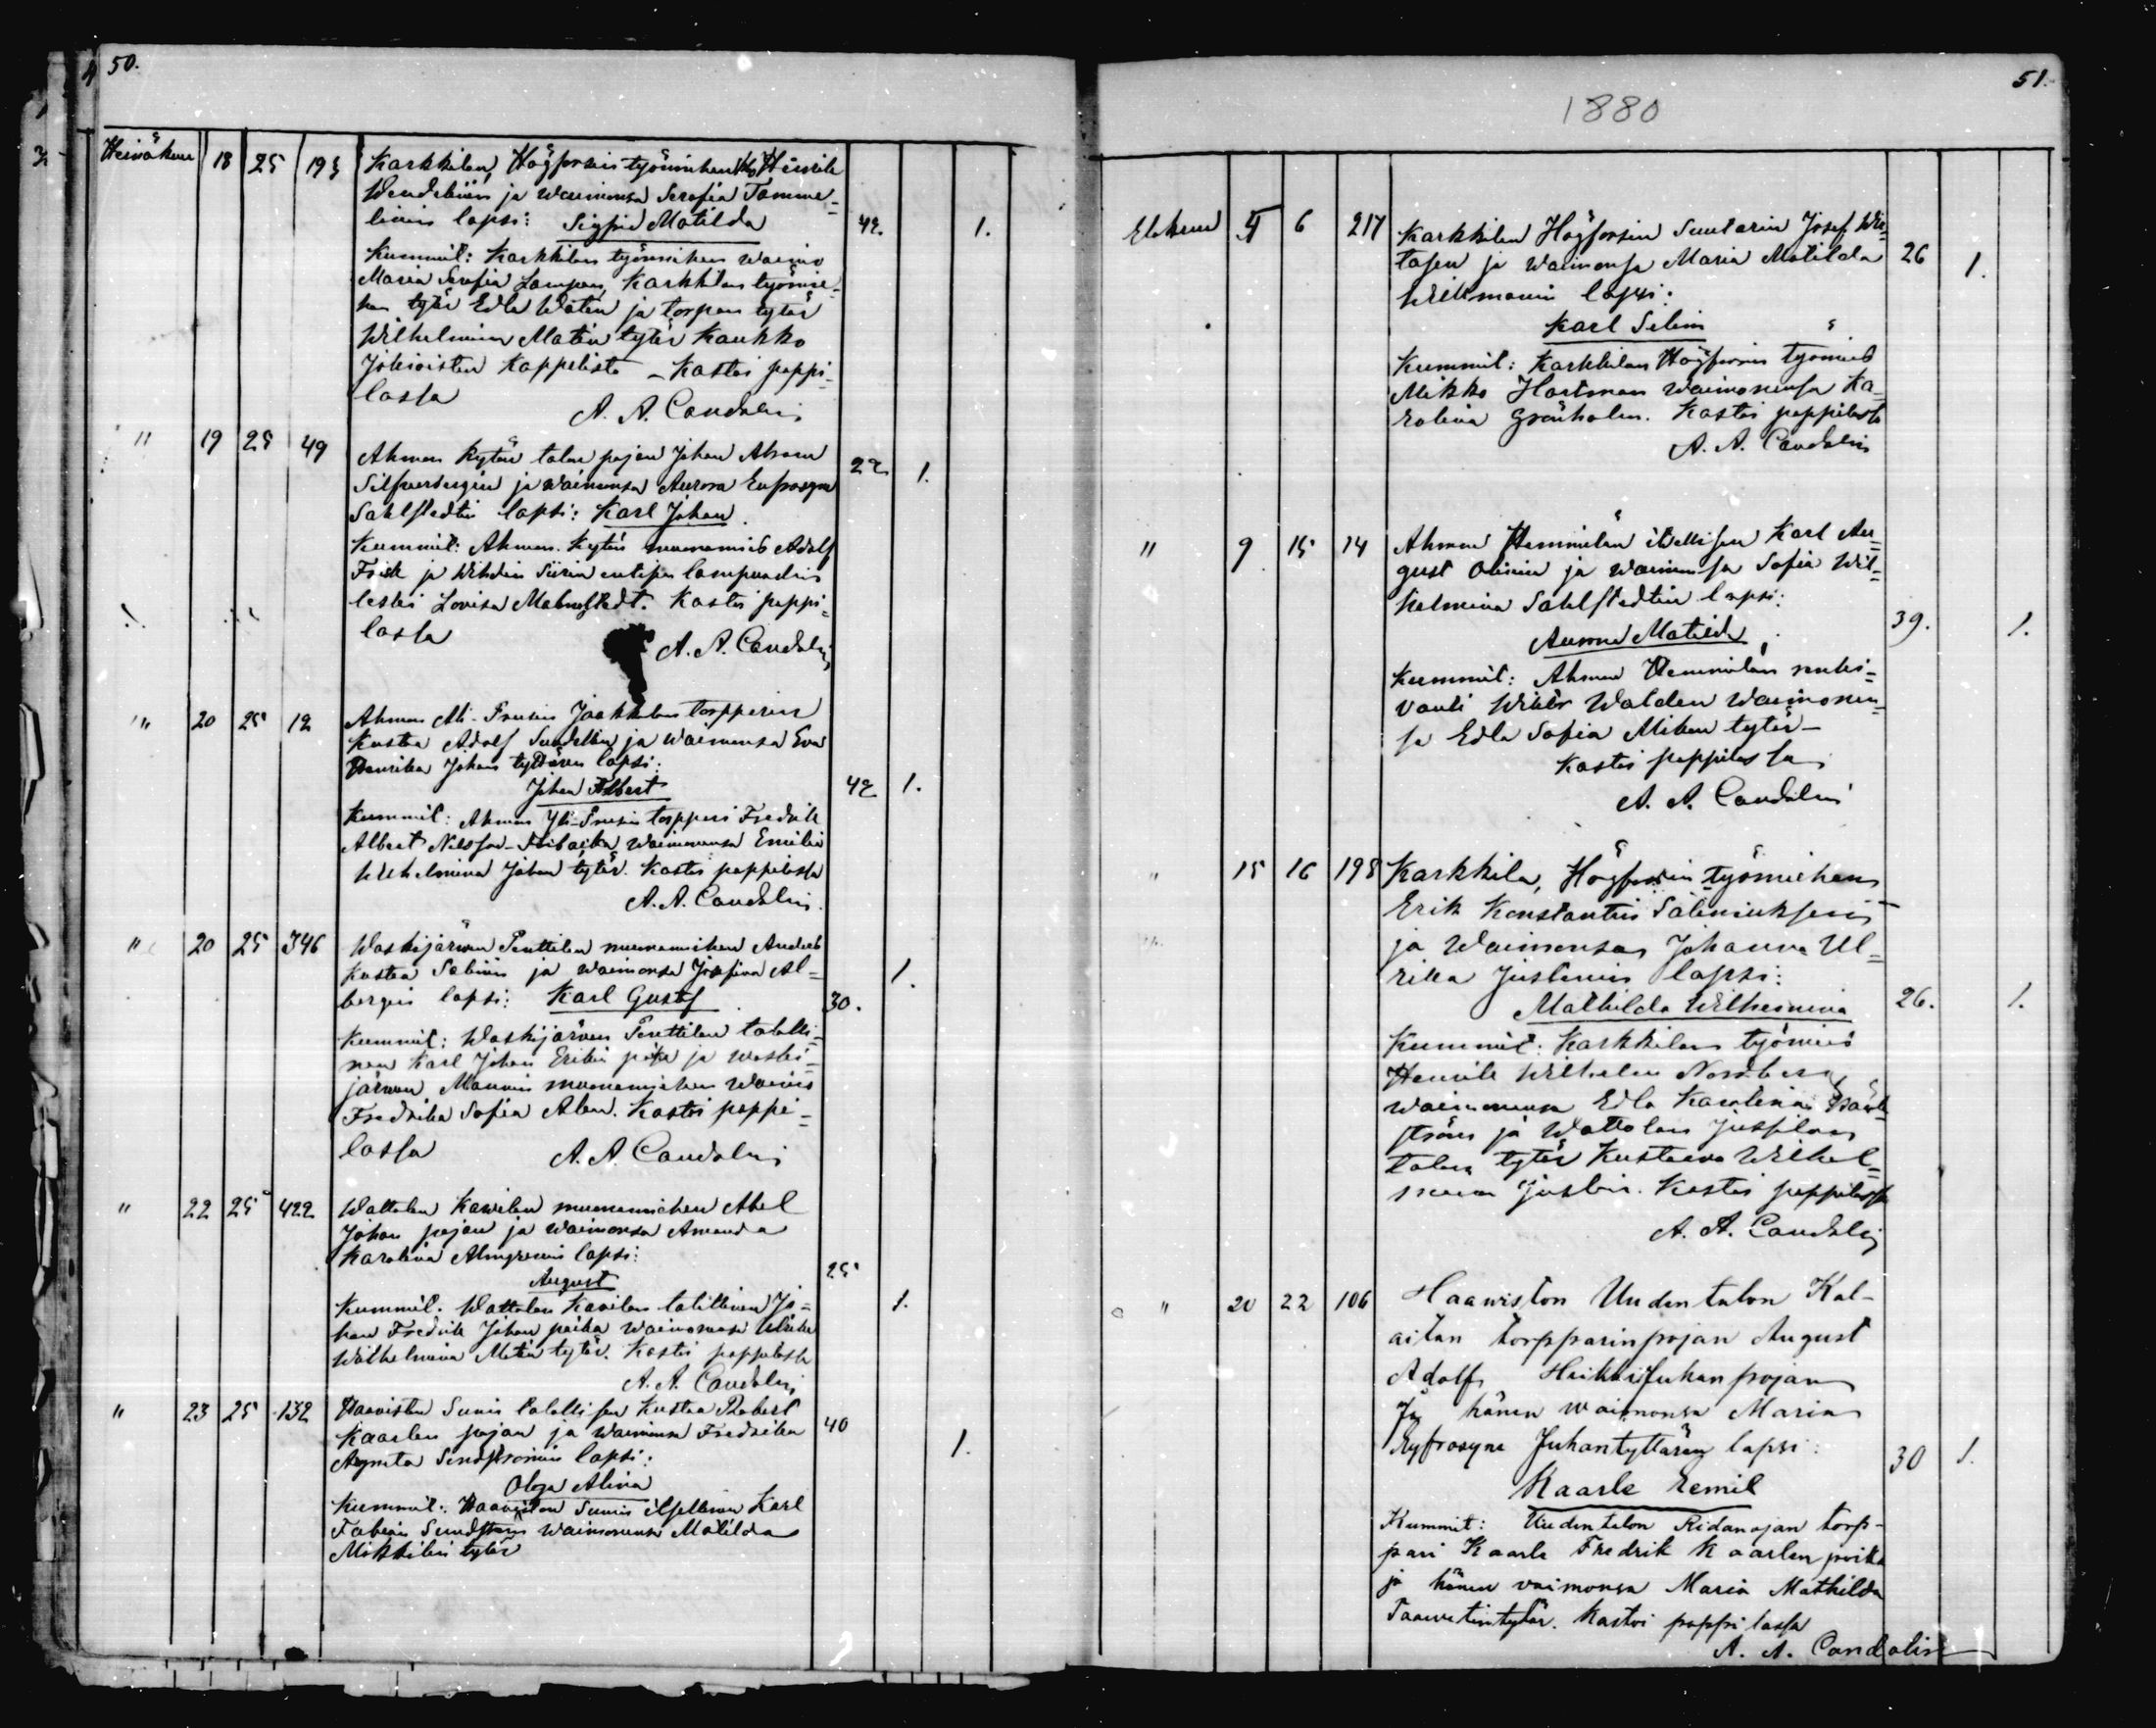 50.
Heinäkuu 18 25 193 Karkkilan, Högforsin työmiehen Henrik
ja waimonsa Serafia Tamme-
linin lapsi: Sigfrid Matilda 42. 1.
Kummit: Karkkilan työmiehen waimo
Maria Serafia Karkkilan työmie-
hen tytär Edla ja torpan tytär
Wilhelmina Matin tytär Kaukko
Jokioisten Kappelista – Kastoi pappi-
lassa
A. A. Candolin
" 19 25 49 Ahmon Kytän talon pojan Johan Abram
Silfverbergin ja waimonsa Aurora Eufrosyne
Sahlstedtin lapsi: Karl Johan. 22 1.
Kummit: Ahmon Kytän muonamies Adolf
Frisk ja Wihdin
leski Lovisa Malmstedt. Kastoi pappi-
lassa
A. A. Candolin
" 20 25 12 Ahmon Ali-Jaakkolan torpparin
Kustaa Adolf Sundellin ja waimonsa Eva
Henrika Johan tyttären lapsi:
Johan Albert 42 1.
Kummit: Ahmon Yli- torppari Fredrik
Albert Nilsson waimonensa Emilia
Wilhelmina Johan tytär. Kastoi pappilassa
A. A. Candolin.
" 20 25 346 Waskijärwen Penttilän muonamiehen Anders
Kustaa Salinin ja waimonsa Josefina Al-
bergin lapsi: Karl Gustaf 30. 1.
Kummit: Waskijärwen Penttilän talolli-
nen Karl Johan Erikin poika ja Waski-
järwen Mannin muonamiehen waimo
Fredrika Sofia Alen. Kastoi pappi-
lassa
A. A. Candolin
" 22 25 422 Wattolan Kawilan muonamiehen Abel
Johan pojan ja waimonsa Amanda
Karolina Almgrenin lapsi:
August 25 1.
Kummit: Wattolan Kavilan talollinen Jo-
han Fredrik Johan poika waimonensa Ulrika
Wilhelmina Matin tytär. Kastoi pappilassa
A. A. Candolin
" 23 25 132 Haaviston Sunin talollisen Kustaa Robert
Kaarlen pojan ja waimonsa Fredrika
Agneta Sundströmin lapsi: 40 1.
Olga Alina
Kummit: Haaviston Sunin itsellinen Karl
Fabian Sundström waimonensa Matilda
Mikkelin tytär
51.
1880
Elokuu 4 6 217 Karkkilan Högforsin Suutarin Josef Wir-
tasen ja waimonsa Maria Matilda 26 1.
Willmanin lapsi:
Karl Selim
Kummit: Karkkilan Högforsin työmies
Mikko Hartman waimonensa Ka-
rolina Grönholm. Kastoi pappilassa
A. A. Candolin
" 9 15 14 Ahmon Hemmilän itsellisen Karl Au-
gust ja waimonsa Sofia Wil-
helmina Sahlstedtin lapsi:
Aurora Matilda 39. 1.
Kummit: Ahmon Hemmilän
vouti Wiktor Walden waimonen-
sa Edla Sofia Mikon tytär –
Kastoi pappilassa
A. A. Candolin
" 15 16 198 Karkkila, Högforsin työmiehen
Erik Konstantin Saleniuksen
ja waimonsa Johanna Ul-
rika Juslenin lapsi:
Mathilda Wilhelmina 26. 1.
Kummit: Karkkilan työmies
Henrik Wilhelm Nordberg
waimonensa Edla Karolina Bäck-
ström ja Wattolan Jussilan
talon tytär Kustaava Wilhel-
mina Juslin. Kastoi pappilassa
A. A. Candolin
" 20 22 106 Haawiston Uudentalon Kal-
aitan torpparinpojan August
Adolf Heikki Juhanpojan
Ja hänen waimonsa Maria
Eyfrosyne Juhantyttären lapsi: 30 1.
Kaarle Eemil
Kummit: Uudentalon Ridanojan torp-
pari Kaarle Fredrik Kaarlenpoika
ja hänen vaimonsa Maria Mathilda
Taavetintytär. Kastoi pappilassa
A. A. Candolin